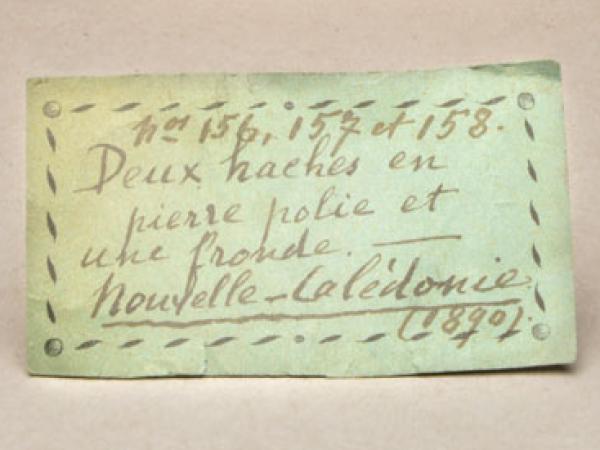 nos 156, 157 et 158.
Deux haches en
pierre polie et
une fronde. —
Nouvelle-Calédonie
(1890).